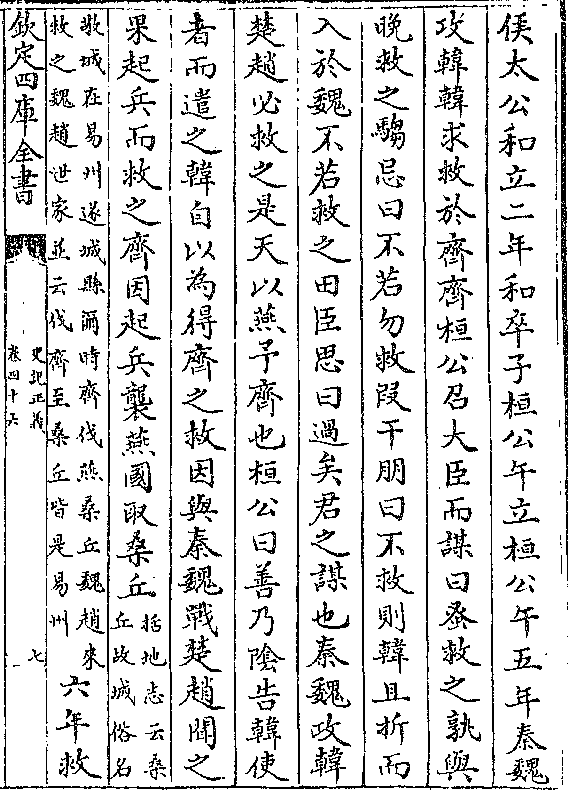 侯太公和立二年和卒子桓公午立桓公午五年秦魏
攻韓韓求救於齊齊桓公召大臣而謀曰蚤救之孰與
晚救之騶忌曰不若勿救段干朋曰不救則韓且折而
入於魏不若救之田臣思曰過矣君之謀也秦魏攻韓
楚趙必救之是天以燕予齊也桓公曰善乃陰告韓使
者而遣之韓自以為得齊之救因與秦魏戰楚趙聞之
果起兵而救之齊因起兵襲燕國取桑丘
括地志云桑
丘故城俗名
敬城在易州遂城縣爾時齊伐燕桑丘魏趙來
救之魏趙世家並云伐齊至桑丘皆是易州
六年救
欽定四庫全書
史記正義
卷四十六
七